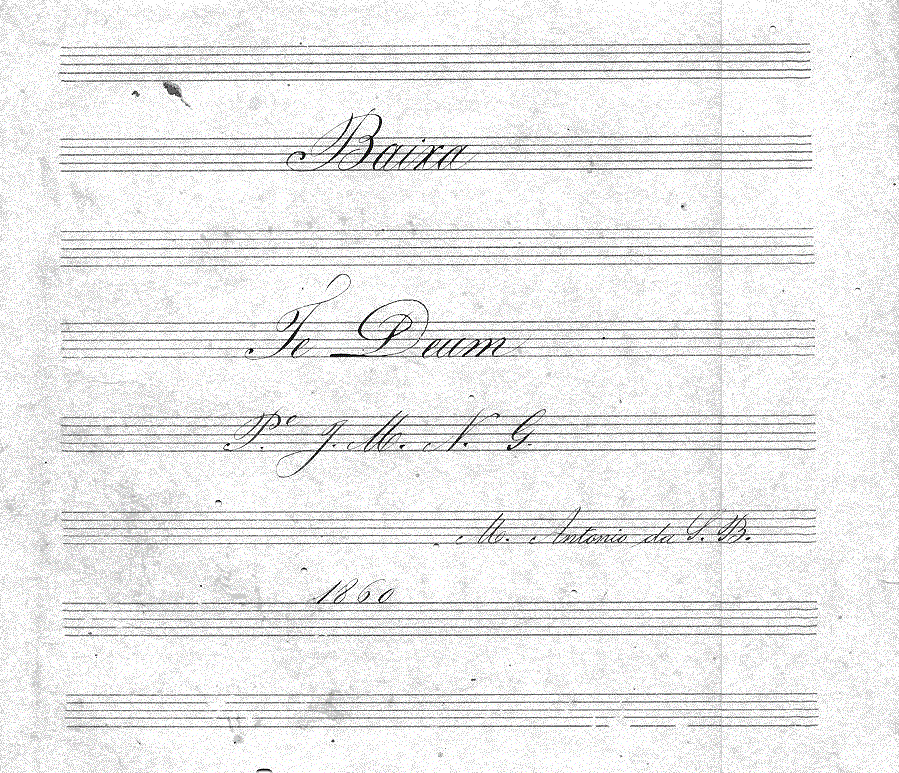 Baixa
Te Deum
P.e J. M. N. G.
M. Antonio da S. B.
1860